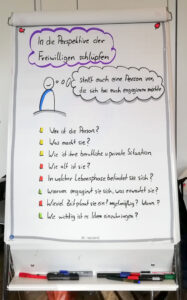 In die Perspektive der
Freiwilligen schlüpfen
Stellt euch eine Person vor,
die sich bei euch engagieren möchte
Wer ist die Person?
Was macht sie?
Wie ist ihre berufliche & private Situation
Wie alt ist sie?
In welcher Lebensphase befindet sie sich?
Warum engagiert sie sich, was erwartet sie?
Wieviel Zeit plant sie ein? regelmäßig? Wann?
Wie wichtig ist es Ideen einzubringen?